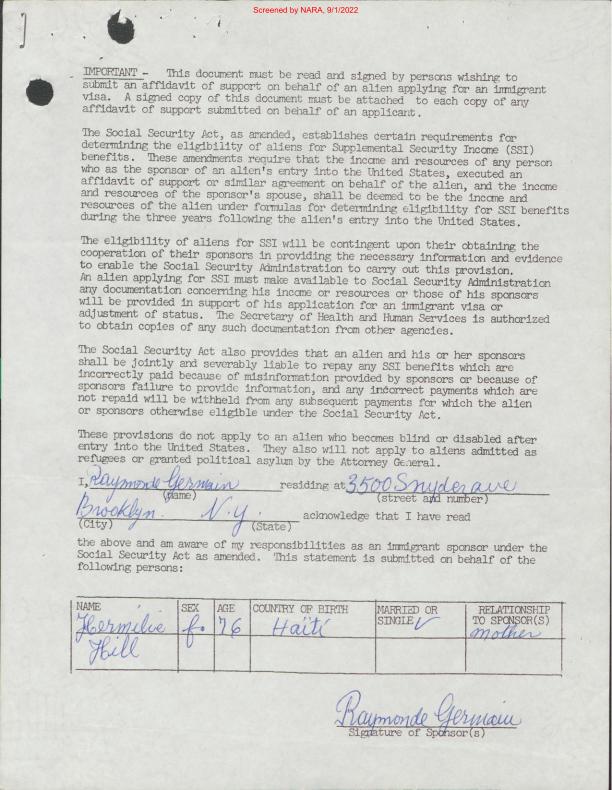 Screened by NARA, 9/1/2022
IMPORTANT - This document must be read and signed by persons wishing to
submit an affidavit of support on behalf of an alien applying for an immigrant
visa. A signed copy of this document must be attached to each copy of any
affidavit of support submitted on behalf of an applicant.
The Social Security Act, as amended, establishes certain requirements for
determining the eligibility of aliens for Supplemental Security Income (SSI)
benefits. These amendments require that the income and resources of any person
who as the sponsor of an alien's entry into the United States, executed an
affidavit of support or similar agreement on behalf of the alien, and the income
and resources of the sponsor's spouse, shall be deemed to be the income and
resources of the alien under formulas for determining eligibility for SSI benefits
during the three years following the alien's entry into the United States.
The eligibility of aliens for SSI will be contingent upon their obtaining the
cooperation of their sponsors in providing the necessary information and evidence
to enable the Social Security Administration to carry out this provision.
An alien applying for SSI must make available to Social Security Administration
any documentation concerning his income or resources or those of his sponsors
will be provided in support of his application for an immigrant visa or
adjustment of status. The Secretary of Health and Human Services is authorized
to obtain copies of any such documentation from other agencies.
The Social Security Act also provides that an alien and his or her sponsors
shall be jointly and severably liable to repay any SSI benefits which are
incorrectly paid because of misinformation provided by sponsors or because of
sponsors failure to provide information, and any incorrect payments which are
not repaid will be withheld from any subsequent payments for which the alien
or sponsors otherwise eligible under the Social Security Act.
These provisions do not apply to an alien who becomes blind or disabled after
entry into the United States. They also will not apply to aliens admitted as
refugees or granted political asylum by the Attorney General.
I, Raymonde Germain residing at 3500 Snyder ave
(name) (street and number)
Brooklyn. N.Y. acknowledge that I have read
(City) (State)
the above and am aware of my responsibilities as an immigrant sponsor under the
Social Security Act as amended. This statement is submitted on behalf of the
following persons:
NAME SEX AGE COUNTRY OF BIRTH MARRIED OR SINGLE ✓ RELATIONSHIP TO SPONSOR(S)
Hermilie f. 76 Haïti mother
Hill
Raymonde Germain
Signature of Sponsor(s)